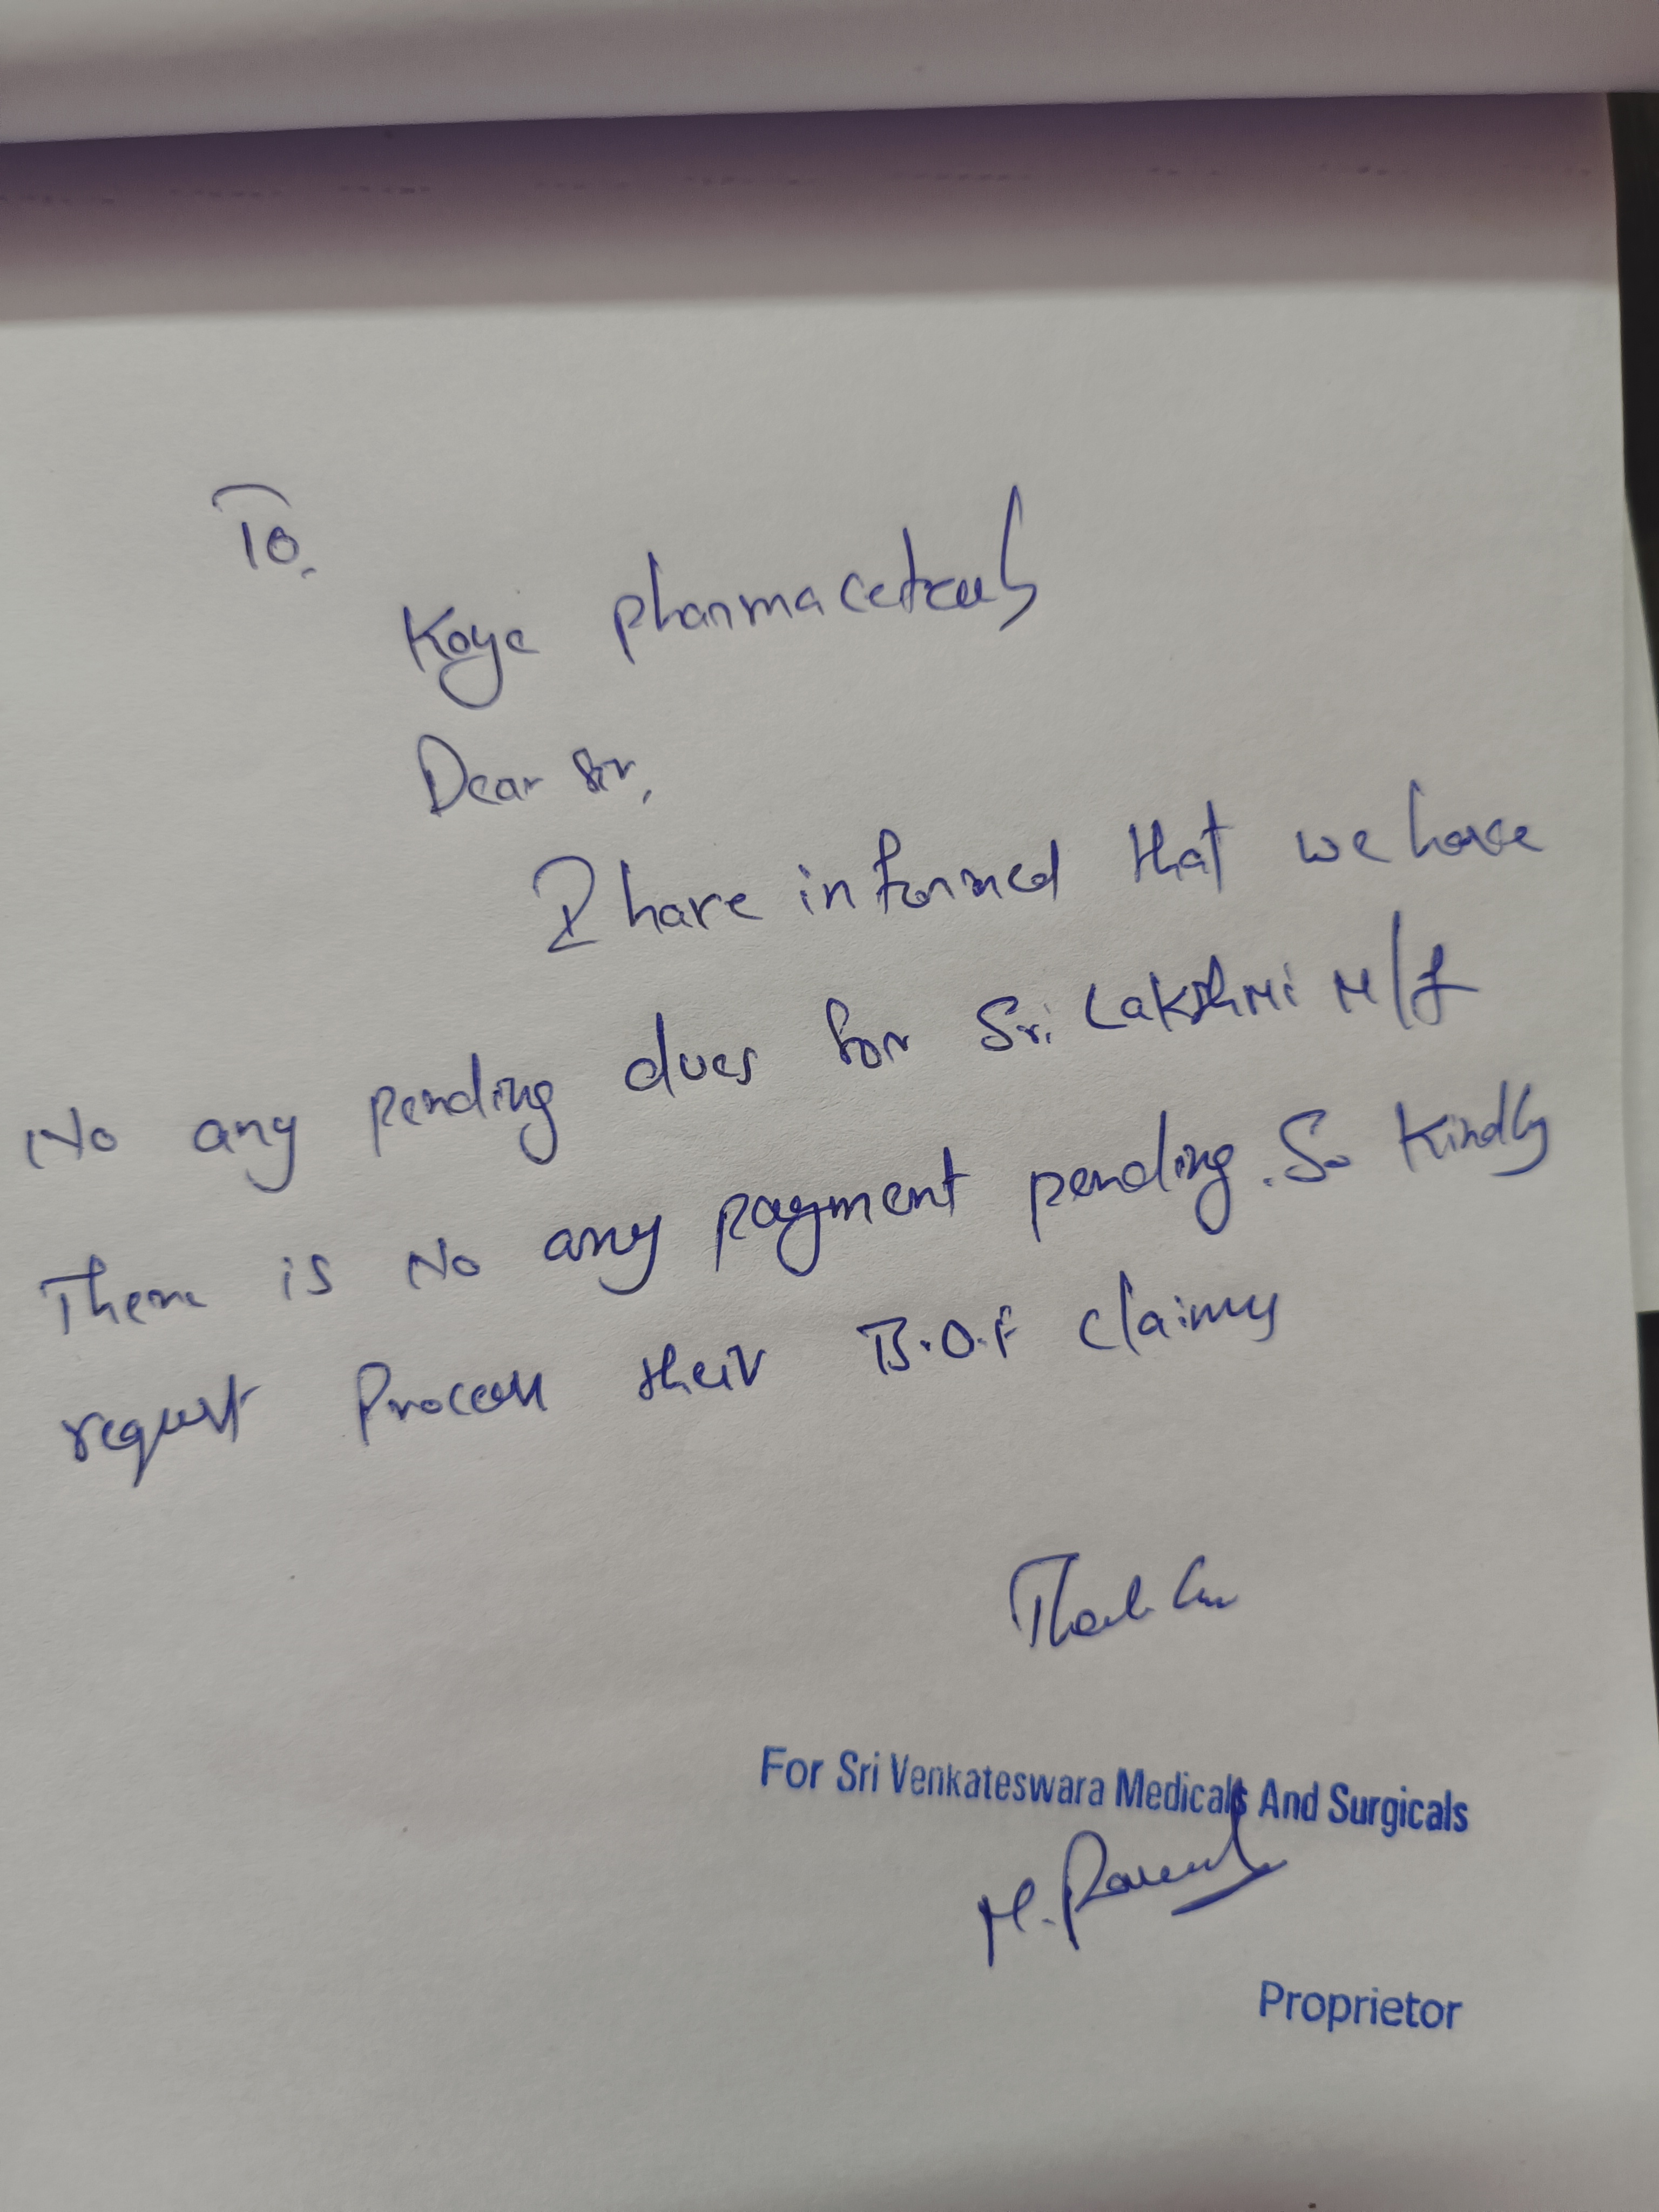 To,
Koye pharmaceticals
Dear Sir,
I have informed that we have
No any pending dues for Sri Lakshmi M/f
There is No any payment pending. So kindly
request Process their B.O.F claims
Thank
For Sri Venkateswara Medicals And Surgicals
M.
Proprietor